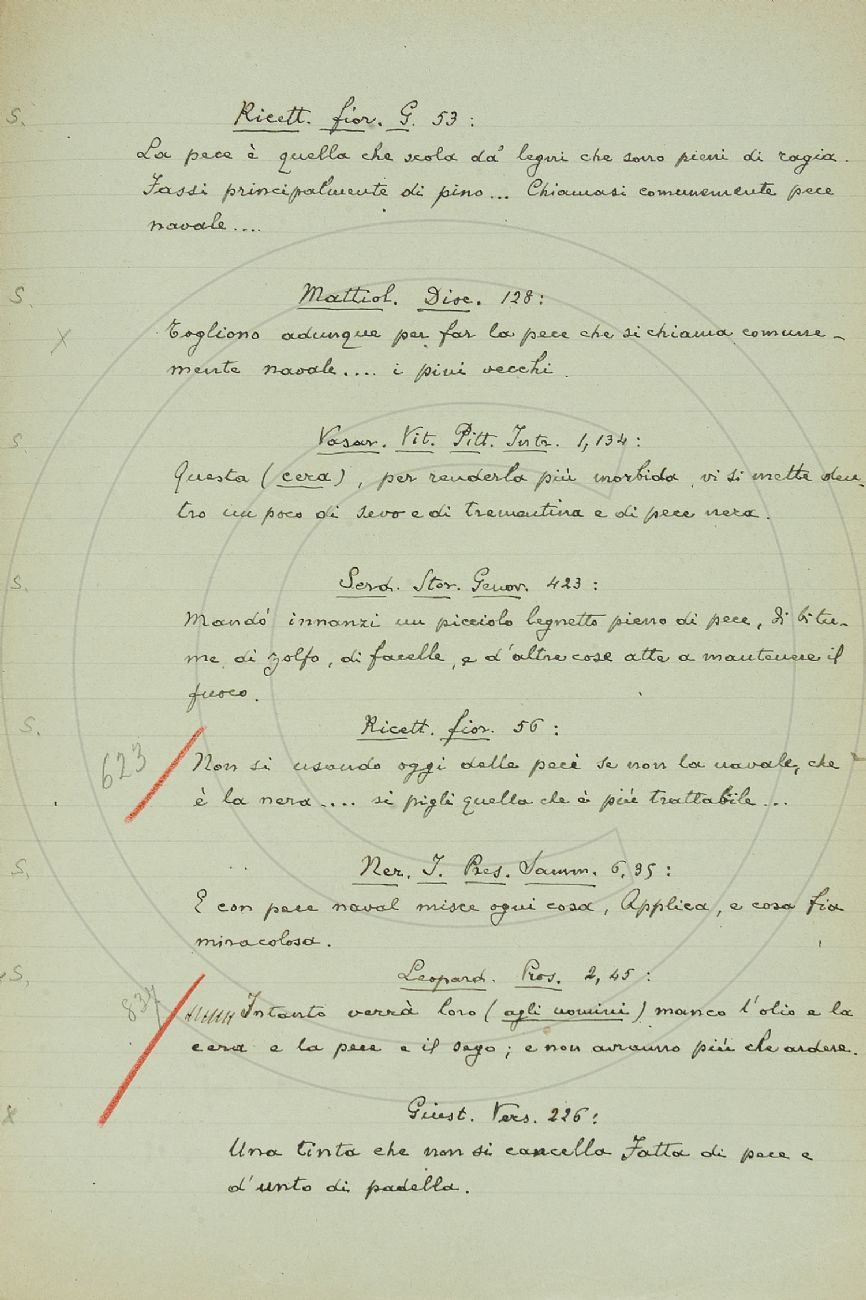 S.
Ricett. fior. G. 53 :
La pece è quella che scola da' legni che sono pieni di ragia.
Fassi principalmente di pino... Chiamasi comunemente pece
navale....
S.
Mattiol. Disc. 128 :
X
Togliono adunque per far la pece che si chiama comune-
mente navale.... i pini vecchi.
S.
Vasar. Vit. Pitt. Intr. 1, 134 :
Questa (cera), per renderla più morbida, vi si mette den-
tro un poco di sevo e di trementina e di pece nera.
S.
Serd. Stor. Genov. 423 :
Mandò innanzi un picciolo legnetto pieno di pece, di bitu-
me, di zolfo, di facelle, e d'altre cose atte a mantenere il
fuoco.
S.
Ricett. fior. 56 :
623
Non si usando oggi delle peci se non la navale, che
è la nera.... si pigli quella che è più trattabile...
S.
Ner. I. Pres. Samm. 6, 35 :
E con pece naval misce ogni cosa, Applica, e cosa fia
miracolosa.
S.
Leopard. Pros. 2, 45 :
837
Intanto verrà loro (agli uomini) manco l'olio e la
cera e la pece e il sego; e non avranno più che ardere.
X
Giust. Vers. 226 :
Una tinta che non si cancella Fatta di pece e
d'unto di padella.